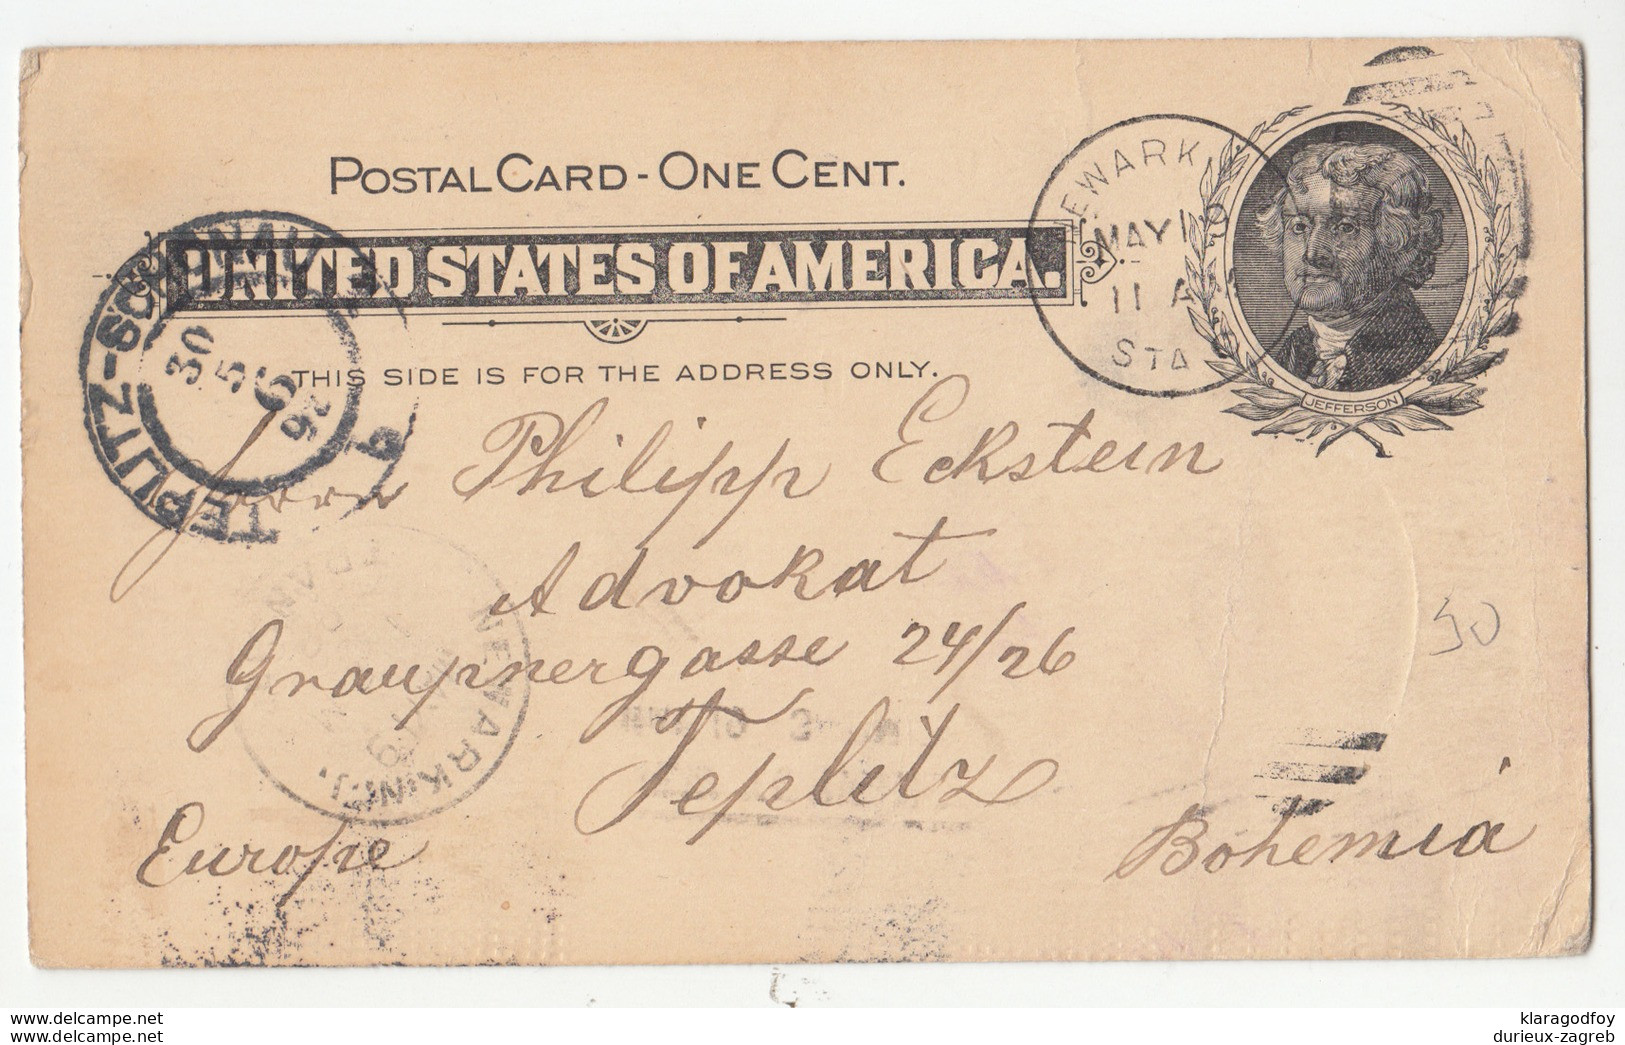 POSTAL CARD - ONE CENT.
UNITED STATES OF AMERICA.
THIS SIDE IS FOR THE ADDRESS ONLY.
EWARK
MAY 10
11 A
STA
JEFFERSON
TEPLITZ-SCHÖNAU
30
5
6
Herrn Philipp Eckstein
Advokat
Graupnergasse 24/26
Teplitz
Europe
Bohemia
NEWARK, N.J.
50
www.delcampe.net
www.delcampe.com
klaragodfoy
durieux-zagreb